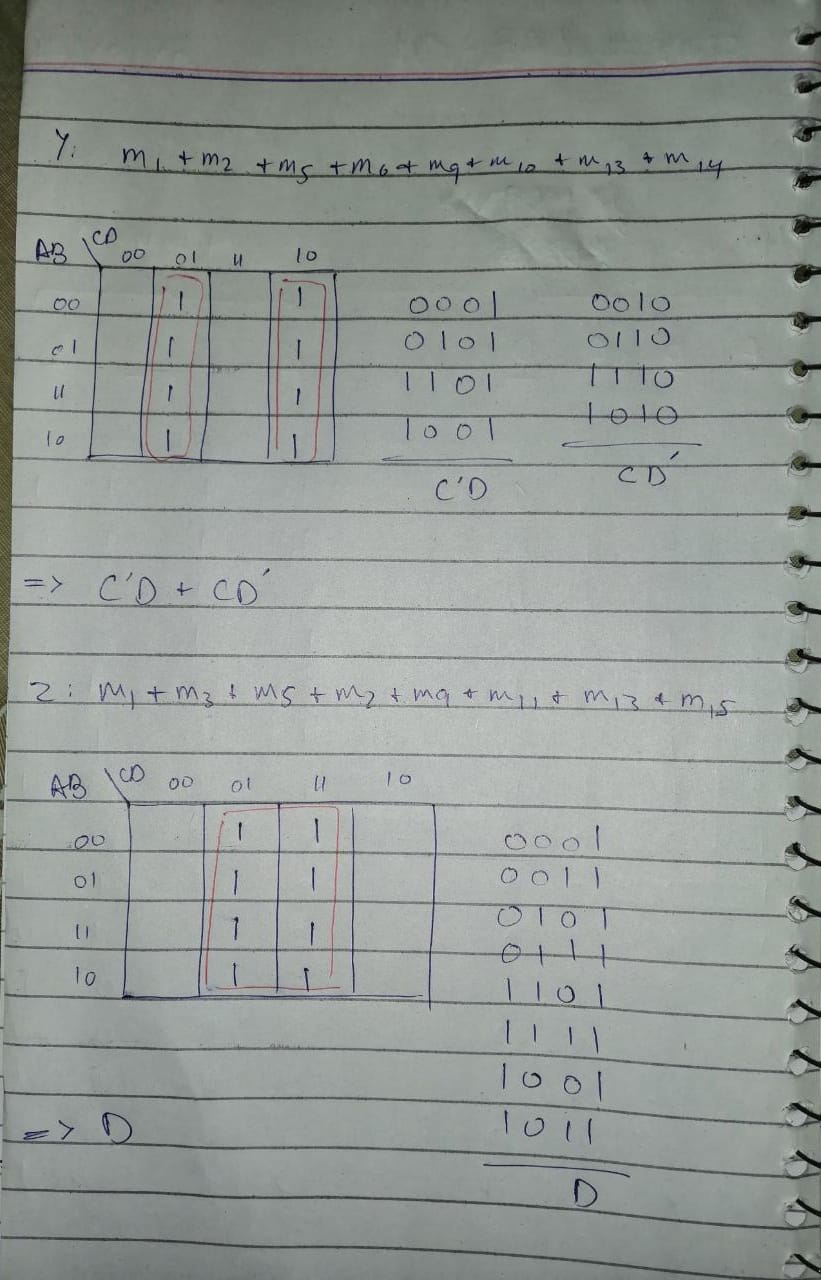 Y: m1 + m2 + m5 + m6 + m9 + m10 + m13 + m14
AB \ CD 00 01 11 10
00 1 1 0001 0010
01 1 1 0101 0110
11 1 1 1101 1110
10 1 1 1001 1010
C'D CD'
=> C'D + CD'
Z: m1 + m3 + m5 + m7 + m9 + m11 + m13 + m15
AB \ CD 00 01 11 10
00 1 1 0001
01 1 1 0011
11 1 1 0101
0111
10 1 1 1101
1111
1001
=> D 1011
D